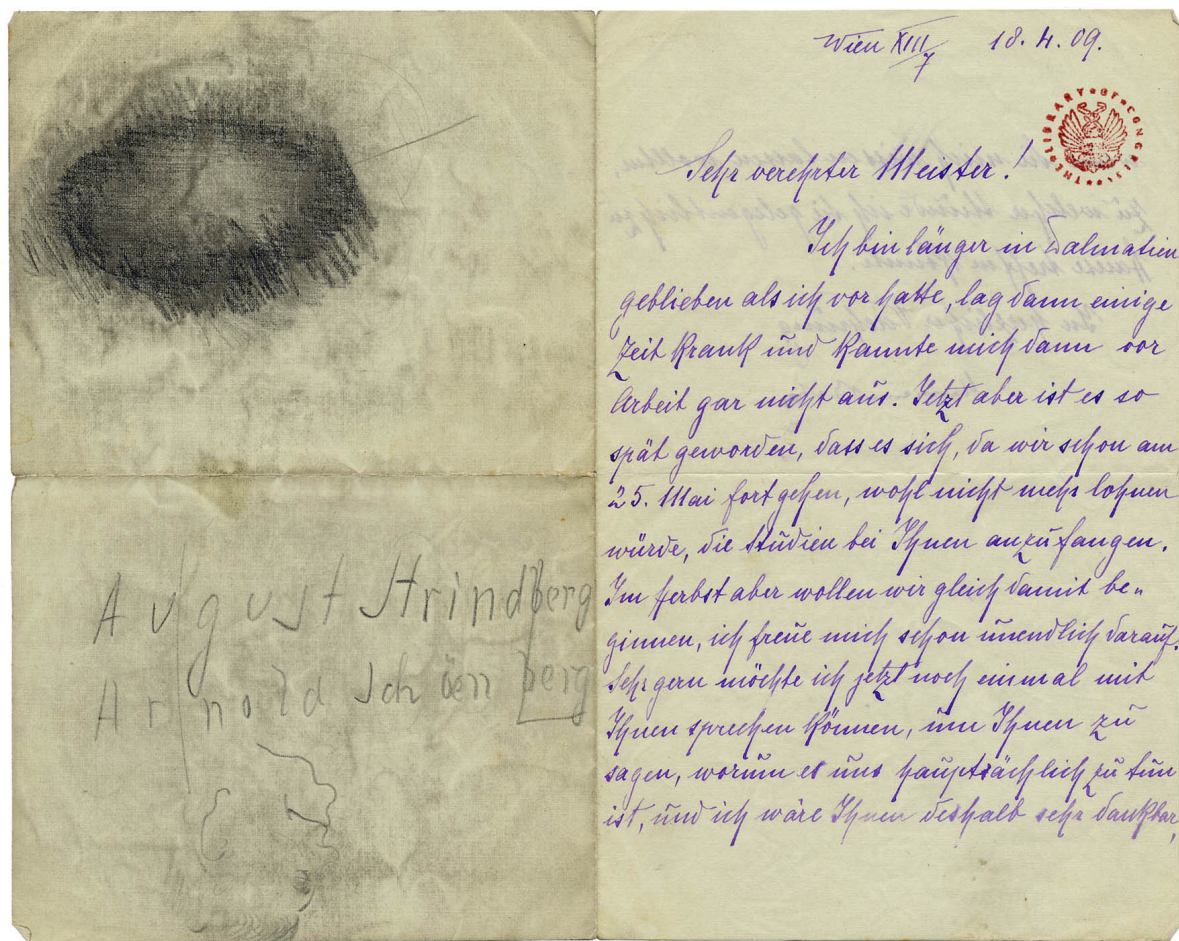 August Strindberg
Arnold Schönberg
Wien XIII/7 18.4.09.
THE LIBRARY OF CONGRESS
Sehr verehrter Meister!
Ich bin länger in Dalmatien
geblieben als ich vor hatte, lag dann einige
Zeit krank und kannte mich dann vor
Arbeit gar nicht aus. Jetzt aber ist es so
spät geworden, dass es sich, da wir schon am
25. Mai fortgehen, wohl nicht mehr lohnen
würde, die Studien bei Ihnen anzufangen.
Im Herbst aber wollen wir gleich damit be-
ginnen, ich freue mich schon unendlich darauf.
Sehr gern möchte ich jetzt noch einmal mit
Ihnen sprechen können, um Ihnen zu
sagen, worum es uns hauptsächlich zu tun
ist, und ich wäre Ihnen deshalb sehr dankbar,